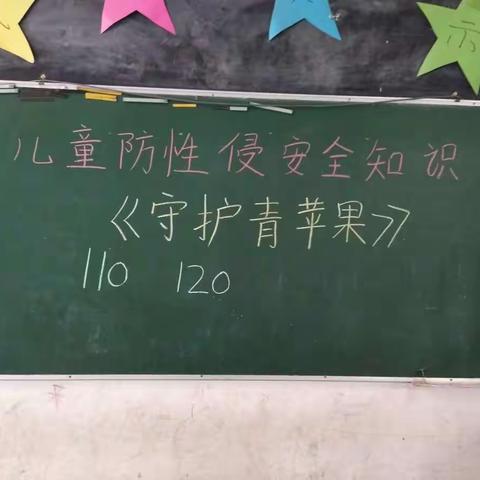 示
儿童防性侵安全知识
《守护青苹果》
110 120